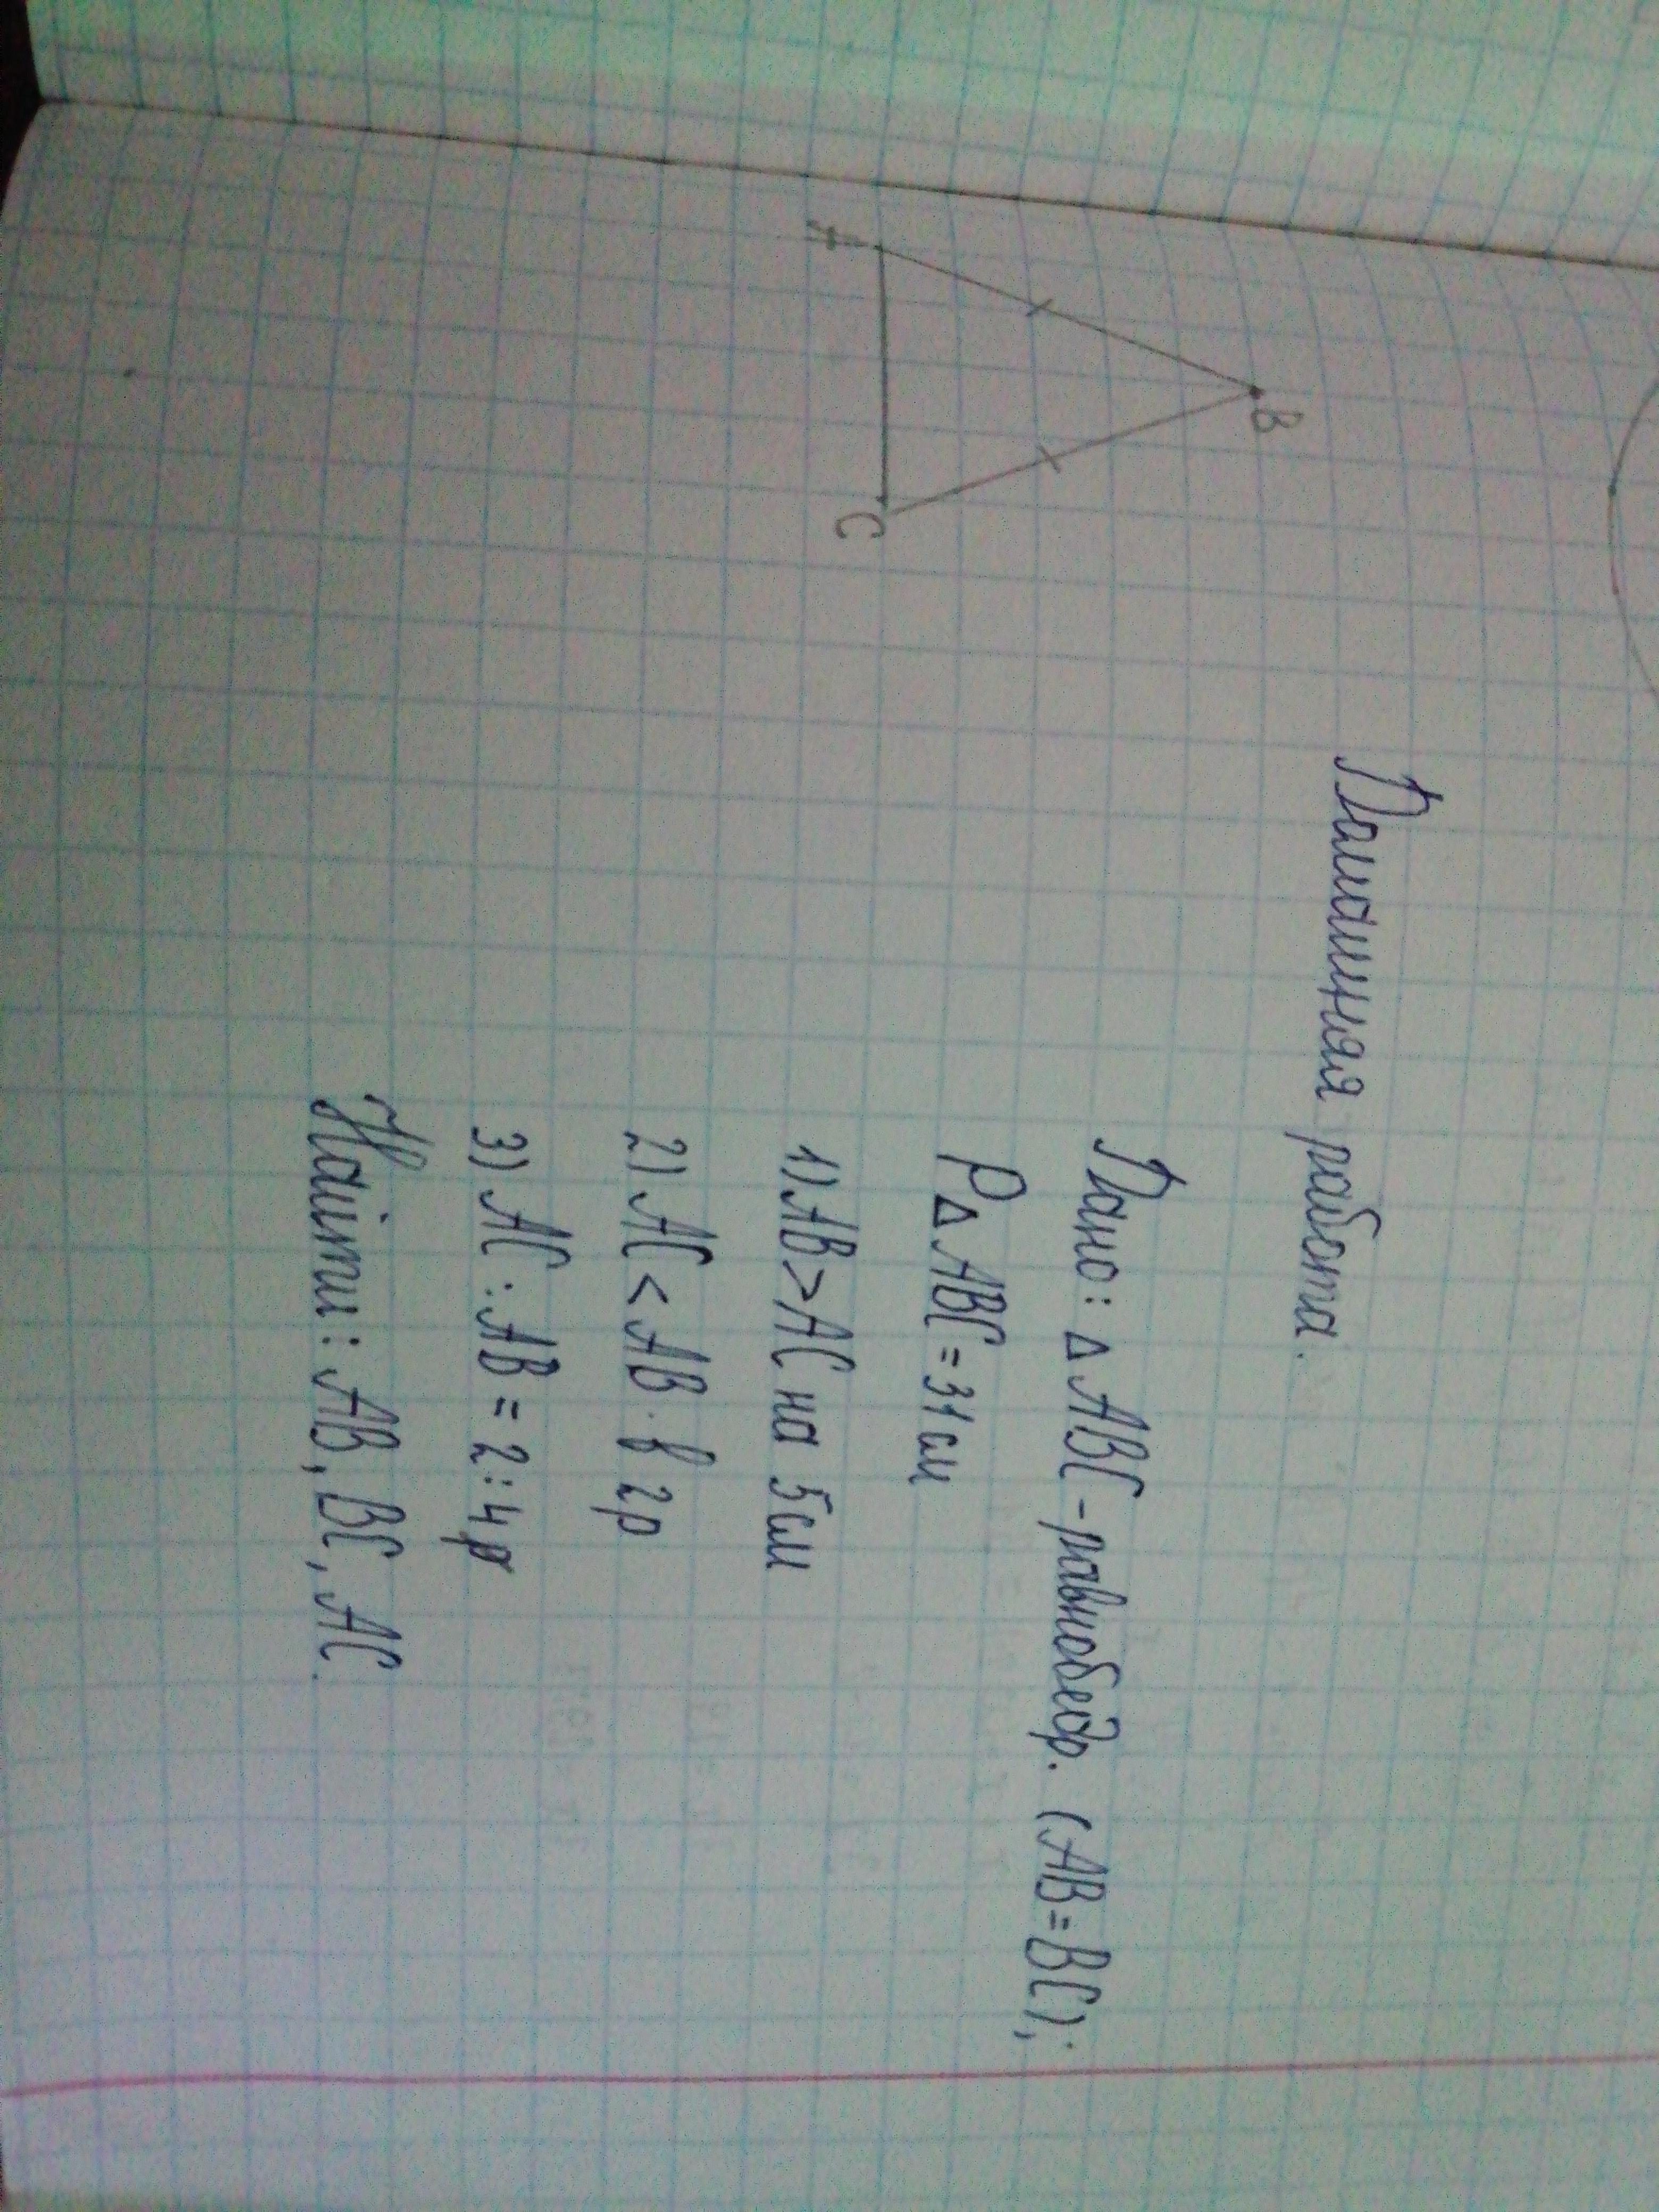 Домашняя работа.
Дано: △ ABC - равнобедр. (AB = BC);
P△ ABC = 31 см
1) AB > AC на 5 см
2) AC < AB в 2р
3) AC : AB = 2:4р
Найти: AB, BC, AC.
B
A
C